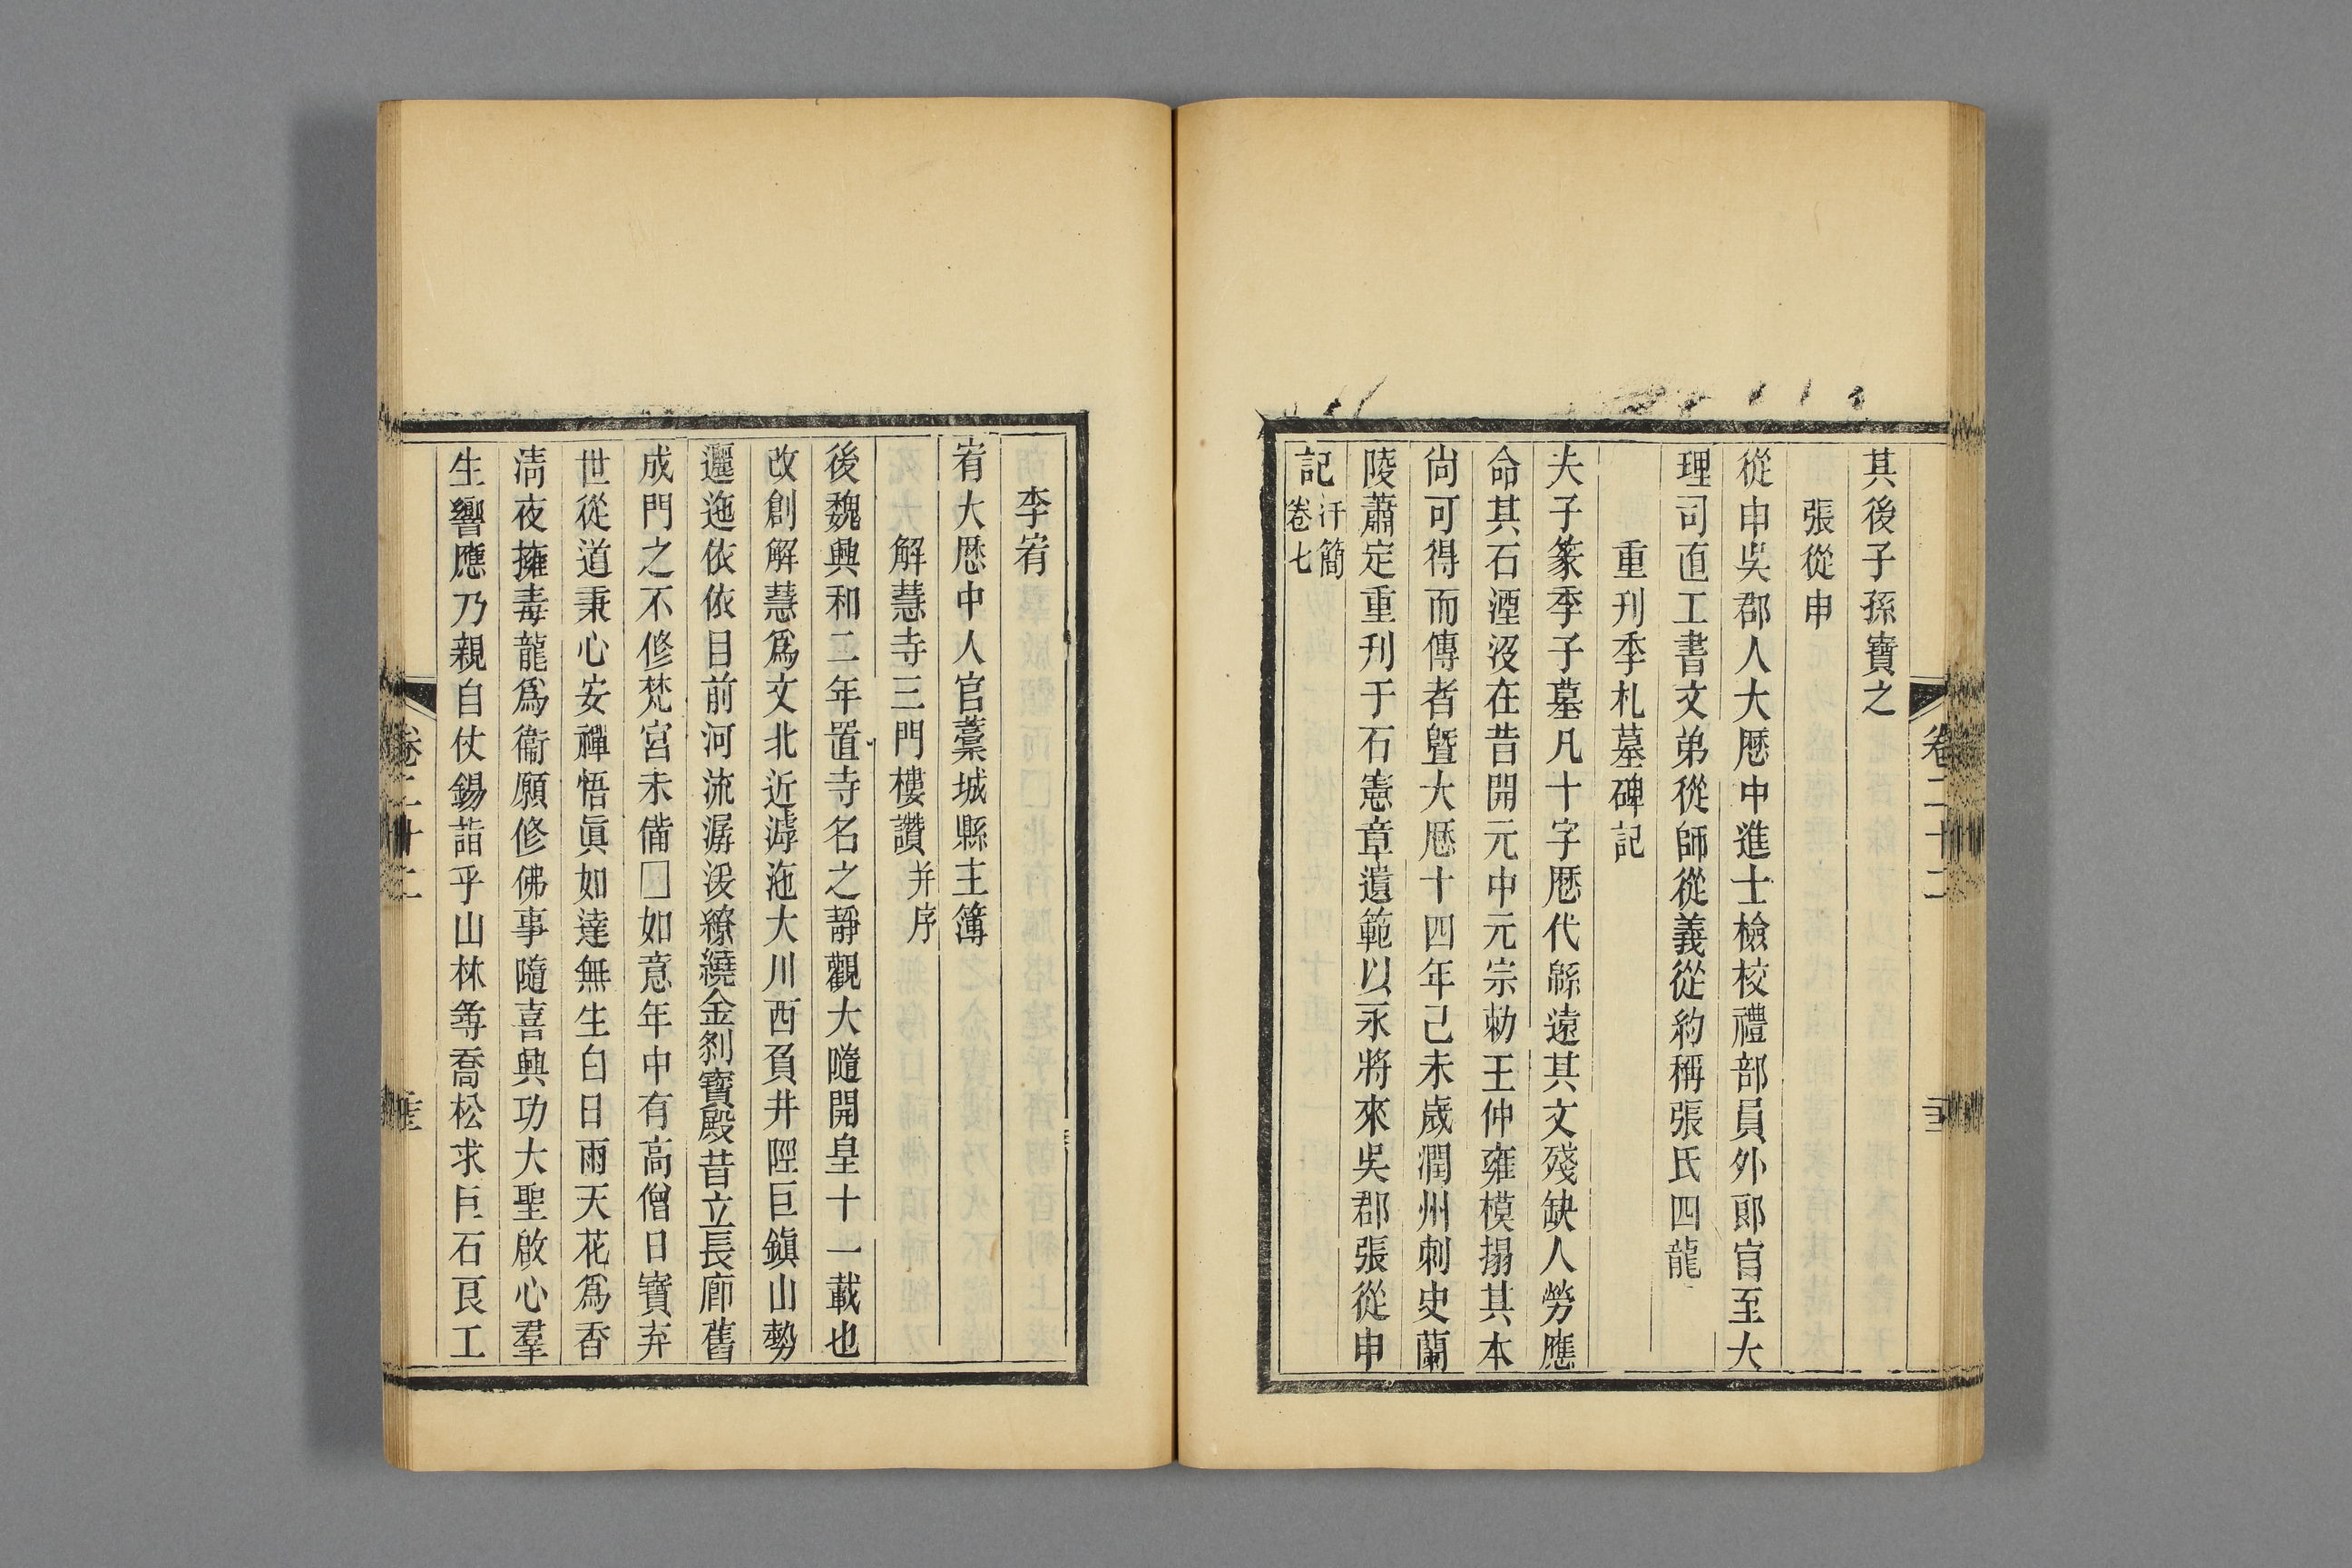 卷二十二
其後子孫寶之
張從申
從申吳郡人大厯中進士檢校禮部員外郎官至大
理司直工書文弟從師從義從約稱張氏四龍
重刊季札墓碑記
夫子篆季子墓凡十字厯代緜遠其文殘缺人勞應
命其石湮沒在昔開元中元宗勅王仲雍模搨其本
尙可得而傳者曁大厯十四年己未歲潤州刺史蘭
陵蕭定重刊于石憲章遺範以永將來吳郡張從申
記汗簡
卷七
李宥
宥大厯中人官藁城縣主簿
解慧寺三門樓讚并序
後魏興和二年置寺名之靜觀大隨開皇十一載也
改創解慧爲文北近滹沲大川西負井陘巨鎭山勢
邐迤依依目前河流潺湲繚繞金刹寶殿昔立長廊舊
成門之不修梵宮未備□如意年中有高僧曰寶弃
世從道秉心安禪悟眞如達無生白日雨天花爲香
淸夜擁毒龍爲衞願修佛事隨喜興功大聖啟心羣
生響應乃親自仗錫詣乎山林尋喬松求巨石良工
卷二十二